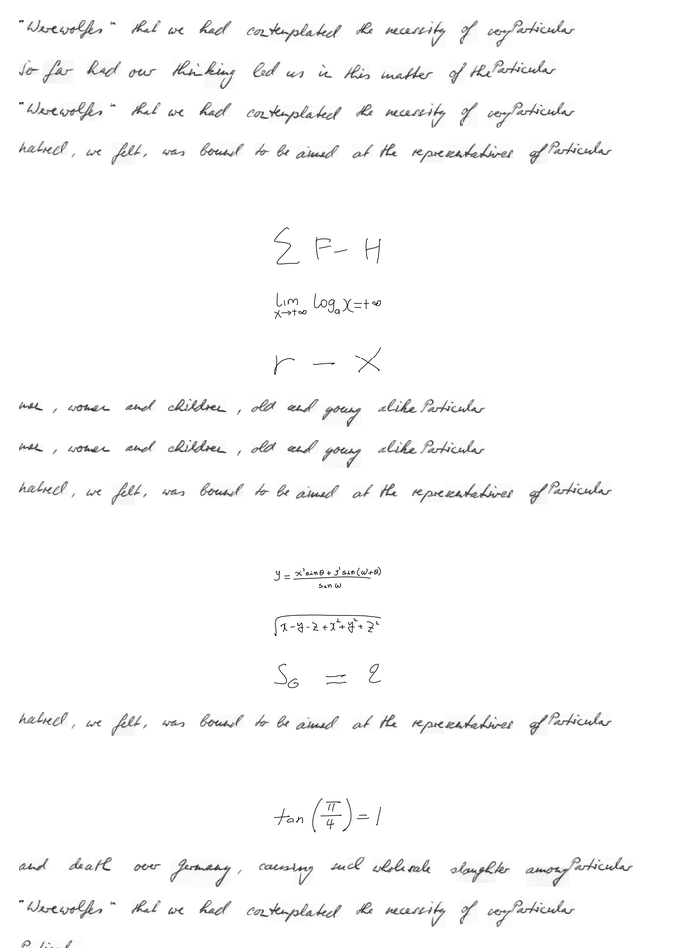 "Werewolfes" that we had contemplated the necessity of very Particular
So far had our thinking led us in this matter of the Particular
"Werewolfes" that we had contemplated the necessity of very Particular
hatred, we felt, was bound to be aimed at the representatives of Particular
∑ F - H
lim x→+∞ log_a x = +∞
r - x
men, women and children, old and young alike Particular
men, women and children, old and young alike Particular
hatred, we felt, was bound to be aimed at the representatives of Particular
y = (x' sin θ + y' sin (ω + θ)) / sin ω
√(x - y - z + x² + y² + z²)
S_G = 2
hatred, we felt, was bound to be aimed at the representatives of Particular
tan (π/4) = 1
and death over Germany, causing such wholesale slaughter among Particular
"Werewolfes" that we had contemplated the necessity of very Particular